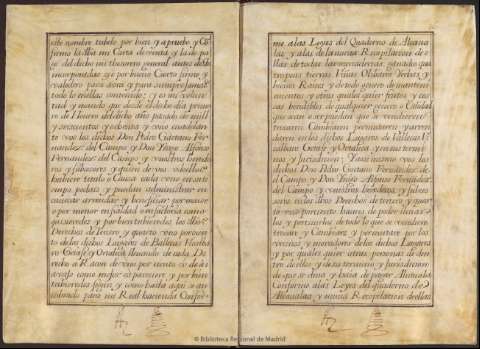 este nombre tubelo por bien y apruebo y Co
firmo la dha mi Carta de venta y la de pa
go del dicho mi thesorero general antes de esto
incorporadas y por bueno Cierto firme y
valedero para aora y para siempre Jamas
todo lo en ellas contenido: y es mi volun
tad y mando que desde el dicho dia prime
ro de Henero del dicho año pasado de mill y
y seiscientos y ochenta y cinco en adelan
te vos los dichos Don Pedro Cayetano Fer
nandez del Campo y Don Yñigo Alfonso
Fernandez del Campo y vuestros herede
ros y subcesores y quien de vos o dellos
hubiere titulo o Causa cada uno por su
tiempo podais y puedan administrar en
cauecar arrendar y beneficiar por mayor
o por menor en
quisieredes y por bien tubieredes las dhos
Derechos de tercero y quarto uno por cien
to de los dichos Lugares de Ballecas
en Getafe y Ortaliça lleuando de cada De
recho a Razon de uno por ciento o desde
como mejor os pareciere y por bien
tubieredes según y como hasta aqui se an
cobrado para mi Real hacienda Confor
me a las Leyes del Quaderno de Alcaua
las y a las de la nueua Recopilacion de e
llas de todas las mercaderias ganados que
tropeas tierras Viñas Olibares Yerbas y
bienes Raices y de todo genero de manteni
mientos vinos qualesquier frutos y co
sas bendibles de qualquier genero o Calidad
que sean o ser puedan que se vendieren
trocaren Cambiaren permutaren y arren
daren en los dichos Lugares de Vallecas
alban Getafe y Ortaliça y en sus termi
nos y Jurisdicion: Y asimismo vos los
dichos Don Pedro Caietano Fernandez de
el Campo y Don Yñigo Alfonso Fernandez
del Campo y vuestros herederos y subces
sores en los dichos Derechos de tercero y quar
to uno por ciento haueis de poder lleuar
los y percivirlos de todo lo que se vendiere
trocare y Cambiare y permutare por los
vecinos y moradores de los dichos Lugares
y por qualesquier otras personas de den
tro dellos y de sus terminos y Jurisdiciones
de que se deua y haia de pagar Alcauala
Conforme a las Leyes del quaderno de
Alcaualas y nueua Recopilacion de ellas
© Biblioteca Regional de Madrid